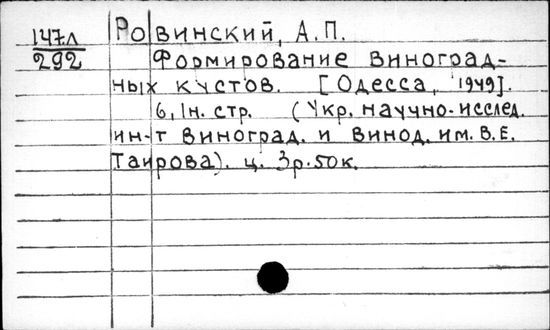 147л
292
Ровинский, А.П.
Формирование виноград-
ных кустов. [Одесса, 1949].
6, 1н. стр. (Укр. научно-исслед.
ин-т виноград. и винод. им. В.Е.
Таирова). ц. 3р.50к.